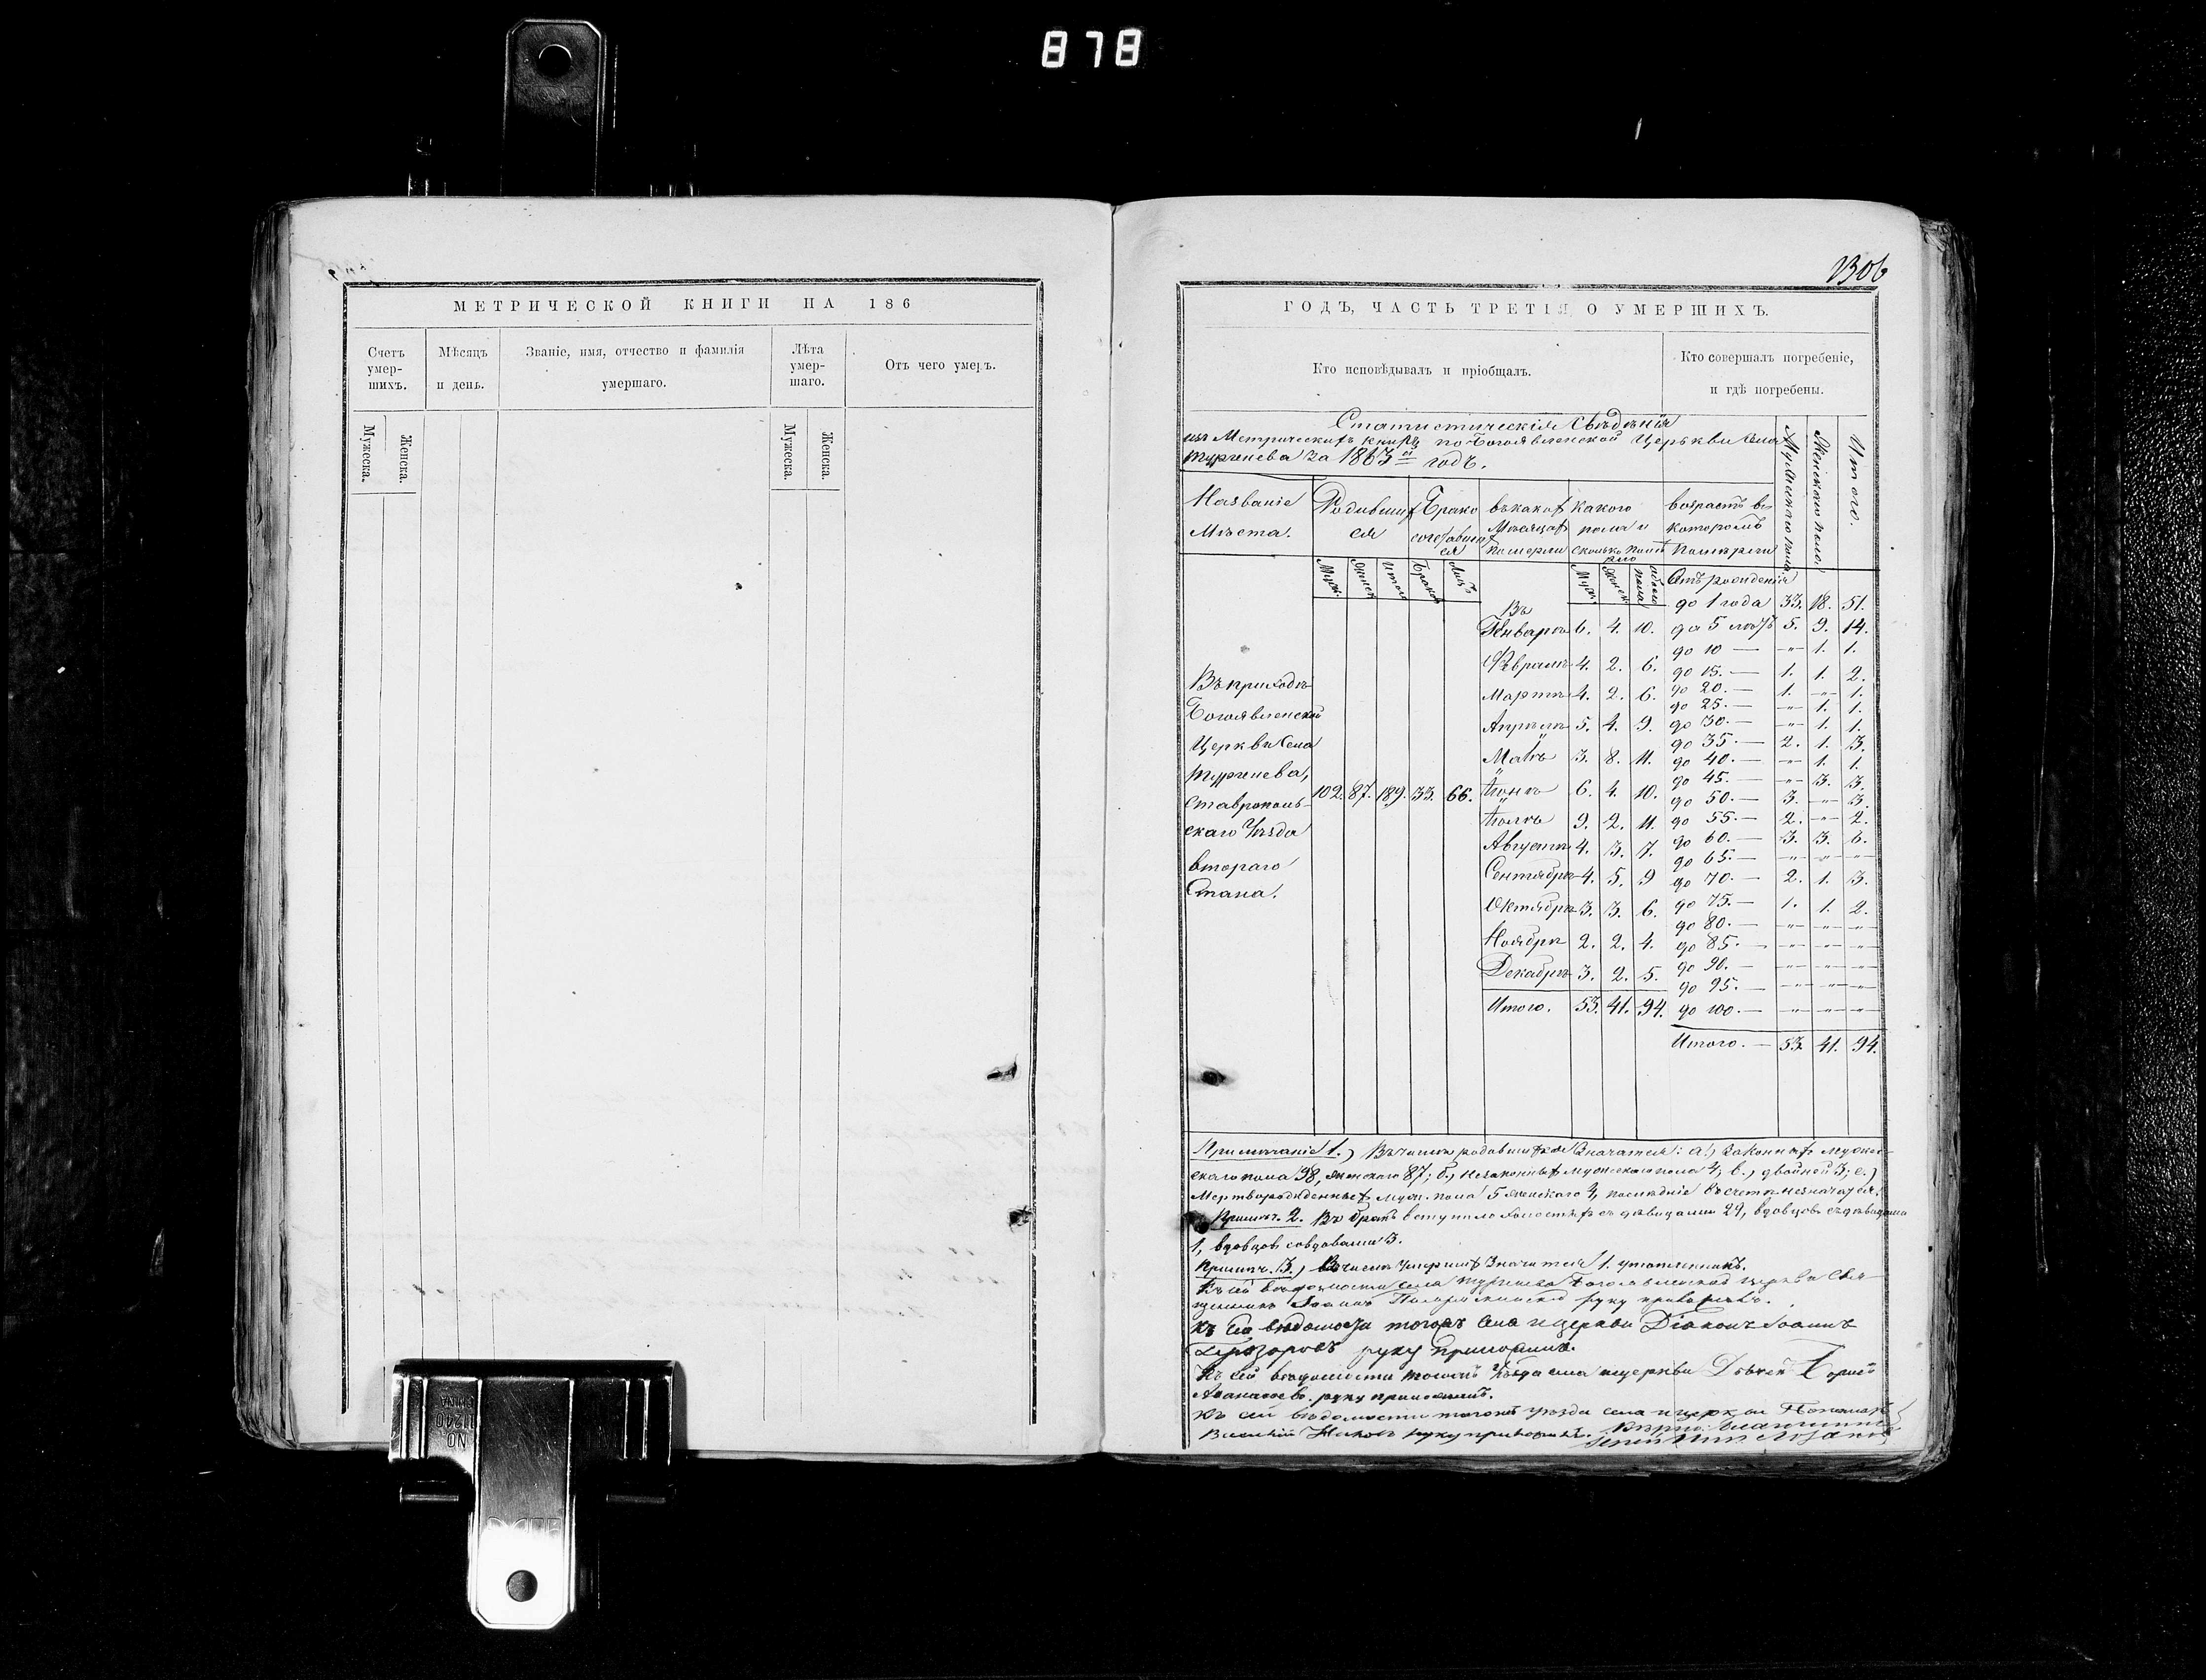 878
1306
МЕТРИЧЕСКОЙ КНИГИ НА 186
Счетъ умер-шихъ.
Мѣсяцъ и день.
Званіе, имя, отчество и фамилія умершаго.
Лѣта умер-шаго.
Отъ чего умеръ.
Мужеска.
Женска.
Мужеска.
Женска.
ГОДЪ, ЧАСТЬ ТРЕТІЯ О УМЕРШИХЪ.
Кто исповѣдывалъ и пріобщалъ.
Кто совершалъ погребеніе, и гдѣ погребены.
Статистическія Свѣдѣнія
изъ Метрическихъ книгъ по Богоявленской Церькви Села
Тургенева за 1863й годъ.
Названіе Мѣста.
Родивших ся
Брако сочетавших ся
въ какихъ Мѣсяцахъ померли
какого пола и сколько помѣрло
возрастъ въ которомъ Померли
Мужескаго пола
Женскаго пола
Итого.
Муж.
Женск.
Итого
Браков
Лицъ
Муж.
Женск.
обоего пола
Въ приходѣ
Богоявленской
Церкви Села
Тургенева,
Ставрополь-
скаго Уѣзда
втораго
Стана.
102. 87. 189. 33. 66.
Въ
Январѣ 6. 4. 10.
Февралѣ 4. 2. 6.
Мартѣ 4. 2. 6.
Апрѣлѣ 5. 4. 9.
Маѣ 3. 8. 11.
Іюнѣ 6. 4. 10.
Іюлѣ 9. 2. 11.
Августѣ 4. 3. 7.
Сентябрѣ 4. 5. 9
Октябрѣ 3. 3. 6.
Ноябрѣ 2. 2. 4.
Декабрѣ 3. 2. 5.
Итого. 53. 41. 94.
Отъ рожденія
до 1 года 33. 18. 51.
до 5 лѣтъ 5. 9. 14.
до 10 — -"- 1. 1.
до 15. — 1. 1. 2.
до 20. — 1. -"- 1.
до 25. — -"- 1. 1.
до 30. — -"- 1. 1.
до 35. — 2. 1. 3.
до 40. — -"- 1. 1.
до 45. — -"- 3. 3.
до 50. — 3. -"- 3.
до 55. — 2. -"- 2.
до 60. — 3. 3. 6.
до 65. — -"- -"- -"-
до 70. — 2. 1. 3.
до 75. — 1. 1. 2.
до 80. — -"- -"- -"-
до 85. — -"- -"- -"-
до 90. — -"- -"- -"-
до 95. — -"- -"- -"-
до 100. — -"- -"- -"-
Итого. — 53. 41. 94.
Примѣчаніе 1.) Въ числѣ родившихся Значатся: а) Законныхъ муже-
скаго пола 98, женскаго 87; б.) незаконныхъ мужескаго пола 4; в.) двойней 3; г.)
Мертворожденныхъ муж. пола 5 женскаго 4, послѣдніе въ счетъ незначатся.
Примѣч. 2. Въ бракъ вступило холостыхъ съ дѣвицами 29, вдовцовъ съ дѣвицами
1, вдовцовъ со вдовами 3.
Примѣч. 3.) Въ числѣ умершихъ Значится 1. утопленникъ.
Къ сей вѣдомости Села Тургенева Богоявленской церкви Свя-
щенникъ Іоаннъ руку приложилъ.
Къ сей вѣдомости тогожъ Села и церкви Діаконъ Іоаннъ
руку приложилъ.
Къ сей вѣдомости тогожъ Уѣзда села и церкви Дьячекъ Борисъ
руку приложилъ.
Къ сей вѣдомости тогожъ уѣзда села и церкви Пономарь
Василій руку приложилъ.